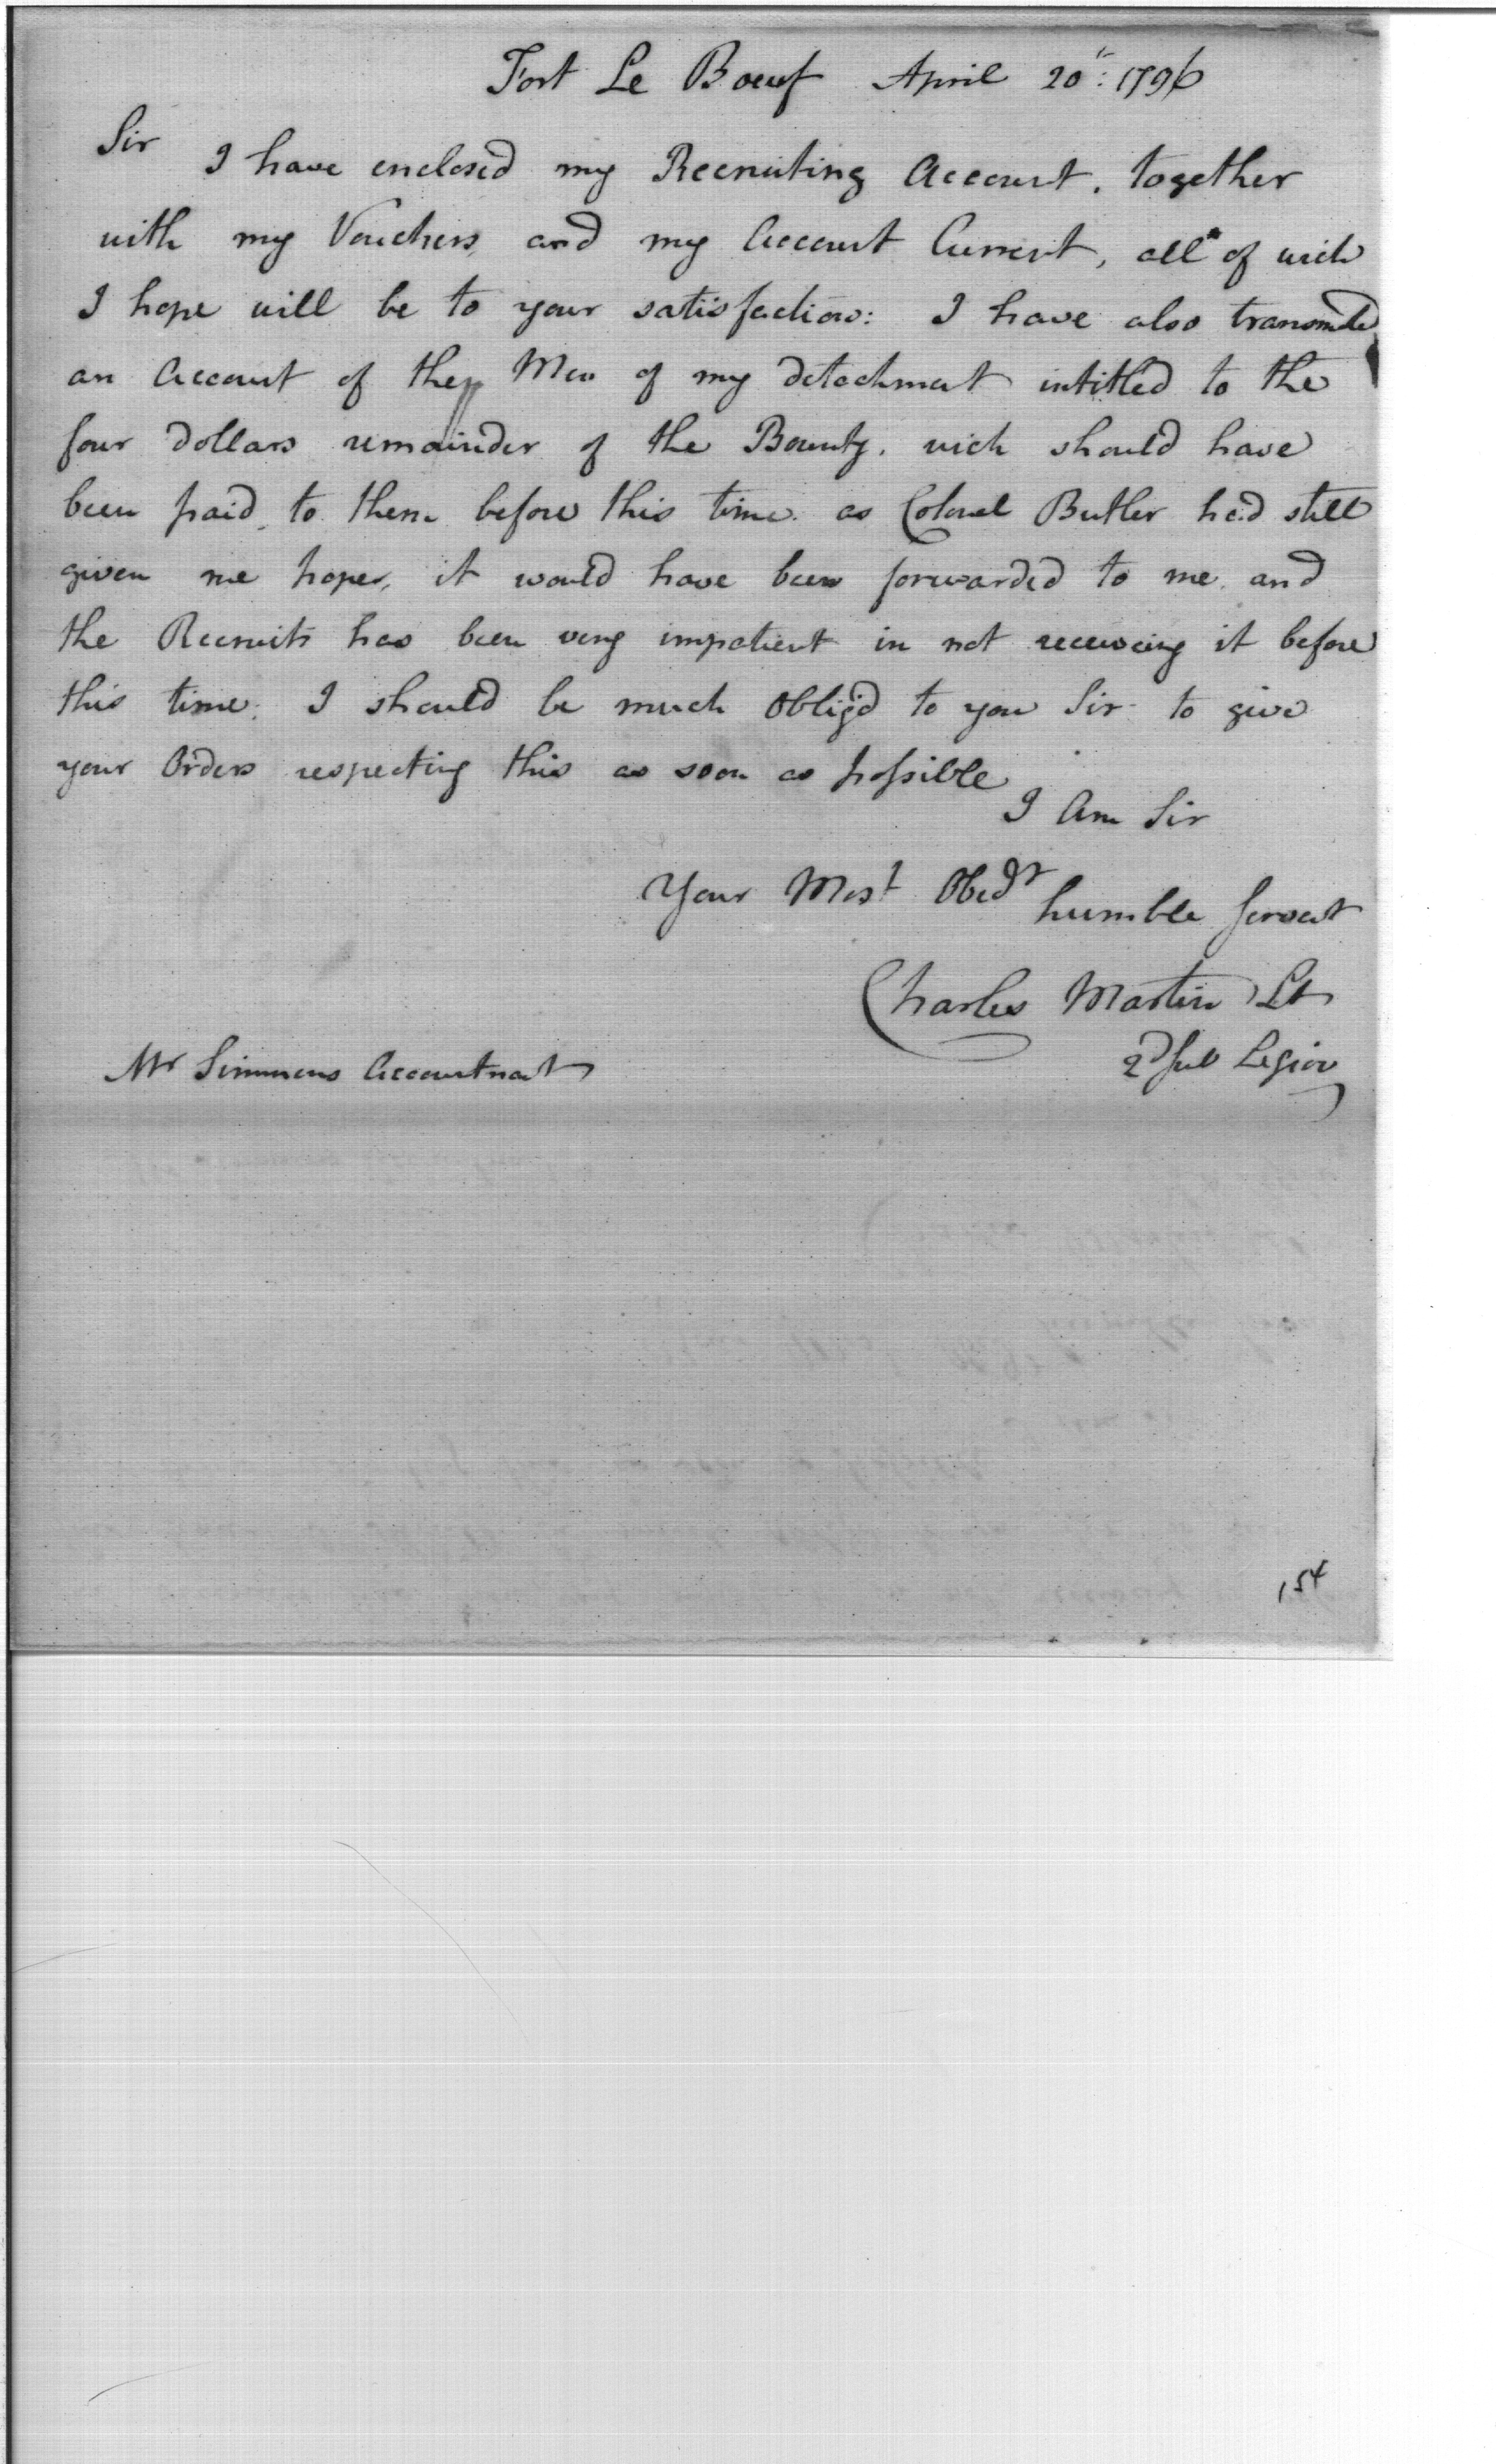 Fort Le Boeuf April 20th: 1796
Sir I have enclosed my Recruiting Account, together
with my Vouchers, and my Account Current, all of wich
I hope will be to your satisfaction: I have also transmited
an Account of the Men of my detachment intitled to the
four dollars remainder of the Bounty. wich should have
been paid, to them before this time. as Colonel Butler had still
given me hopes, it would have been forwarded to me. and
the Recruits has been very impatient in not receiving it before
this time. I should be much Oblig'd to you Sir to give
your Orders respecting this as soon as possible
I Am Sir
Your Most Obedt humble Servant
Charles Martin Lt
2d Sub Legion
Mr Simmons Accountnat
154